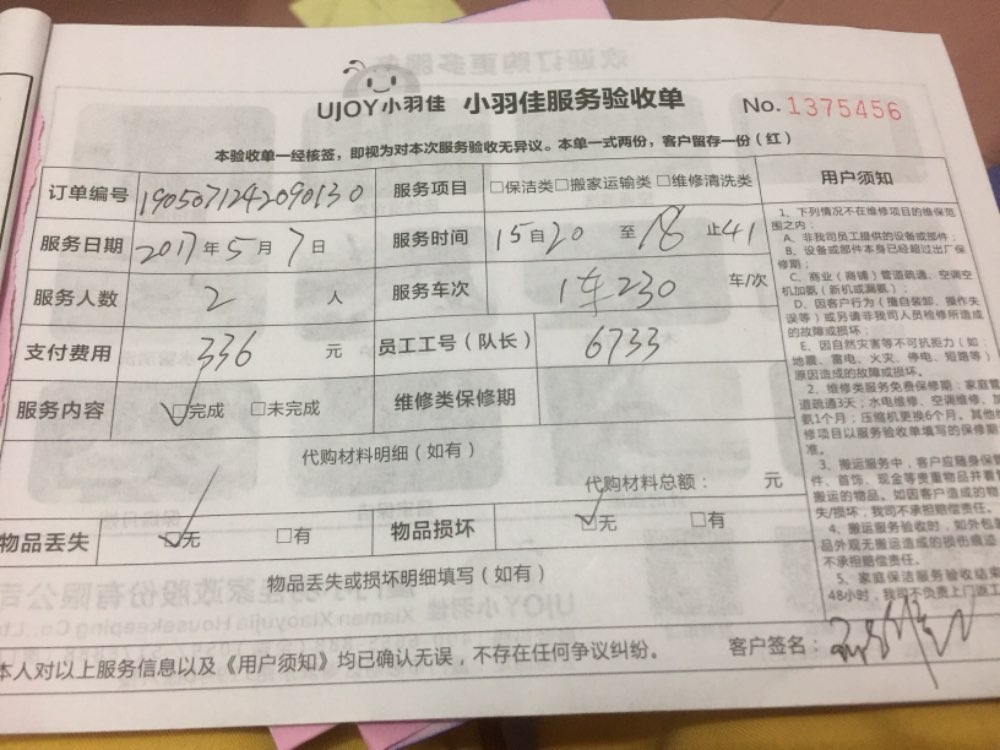 UJOY小羽佳 小羽佳服务验收单 No. 1375456
本验收单一经核签，即视为对本次服务验收无异议。本单一式两份，客户留存一份（红）
订单编号 1905071242090130 服务项目 □保洁类□搬家运输类□维修清洗类 用户须知
服务日期 2017年5月7日 服务时间 15自20至18止41
服务人数 2人 服务车次 1车230 车/次
支付费用 336元 员工工号（队长） 6733
服务内容 ☑完成 □未完成 维修类保修期
代购材料明细（如有）
代购材料总额： 元
物品丢失 ☑无 □有 物品损坏 ☑无 □有
物品丢失或损坏明细填写（如有）
本人对以上服务信息以及《用户须知》均已确认无误，不存在任何争议纠纷。 客户签名：
1、下列情况不在维修项目的维保范
围之内：
A、非我司员工提供的设备或部件；
B、设备或部件本身已经超过出厂保
修期；
C、商业（商铺）管道疏通、空调空
机加氨（新机或漏氨）；
D、因客户行为（擅自装卸、操作失
误等）或另请非我司人员检修所造成
的故障或损坏；
E、因自然灾害等不可抗拒力（如：
地震、雷电、火灾、停电、短路等）
原因造成的故障或损坏。
2、维修类服务免费保修期：家庭管
道疏通3天；水电维修、空调维修、加
氨1个月；压缩机更换6个月。其他
修项目以服务验收单填写的保修期
准。
3、搬运服务中，客户应随身保管
件、首饰、现金等贵重物品并看管
搬运的物品。如因客户造成的物
失/损坏，我司不承担赔偿责任。
4、搬运服务验收时，如外包装
品外观无搬运造成的损伤痕迹
不承担赔偿责任。
5、家庭保洁服务验收结束
48小时，我司不负责上门返工